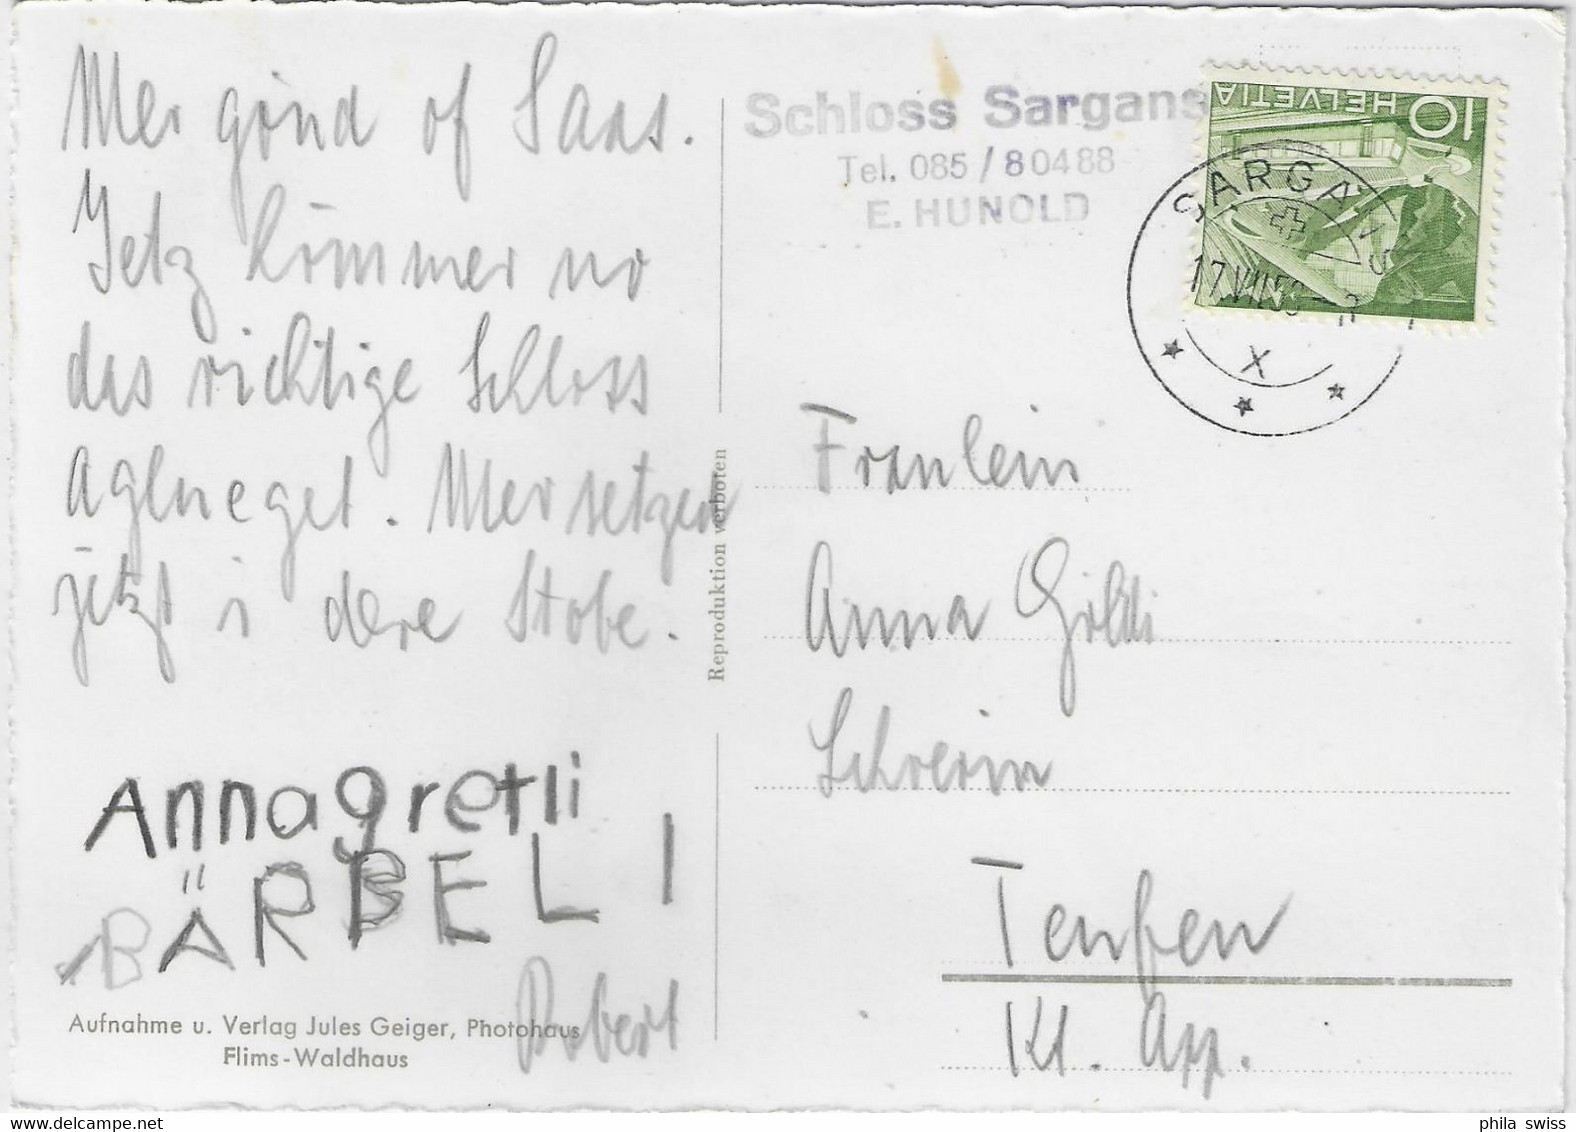 Mer gönd of Saas.
Jetz kömmer no
das richtige Schloss
aglueget. Mer setzen
jetzt i dere Stobe.
Annagretli
BÄRBELI
Robert
Aufnahme u. Verlag Jules Geiger, Photohaus
Flims-Waldhaus
Reproduktion verboten
Schloss Sargans
Tel. 085 / 8 04 88
E. HUNOLD
HELVETIA 10
SARGANS
17.VII.53
X
Fräulein
Anna
Schrein
Teufen
Kt. App.
phila swiss